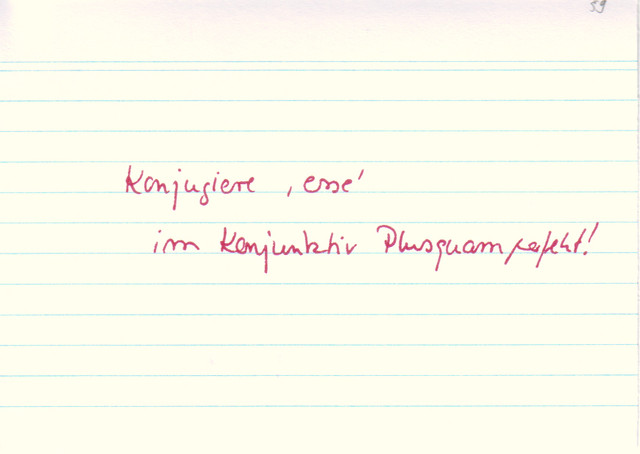 39
Konjugiere ‚esse‘
im Konjunktiv Plusquamperfekt!